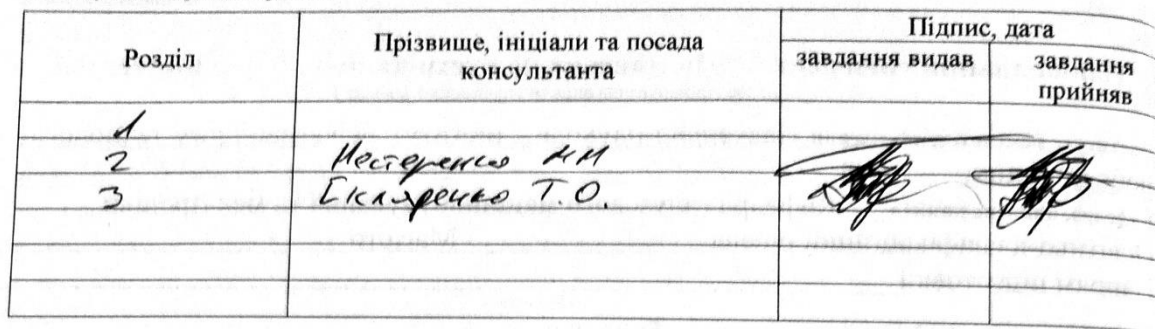 Розділ
Прізвище, ініціали та посада
консультанта
Підпис, дата
завдання видав
завдання
прийняв
1
2 Нестеренко НН
3 Скляренко Т.О.